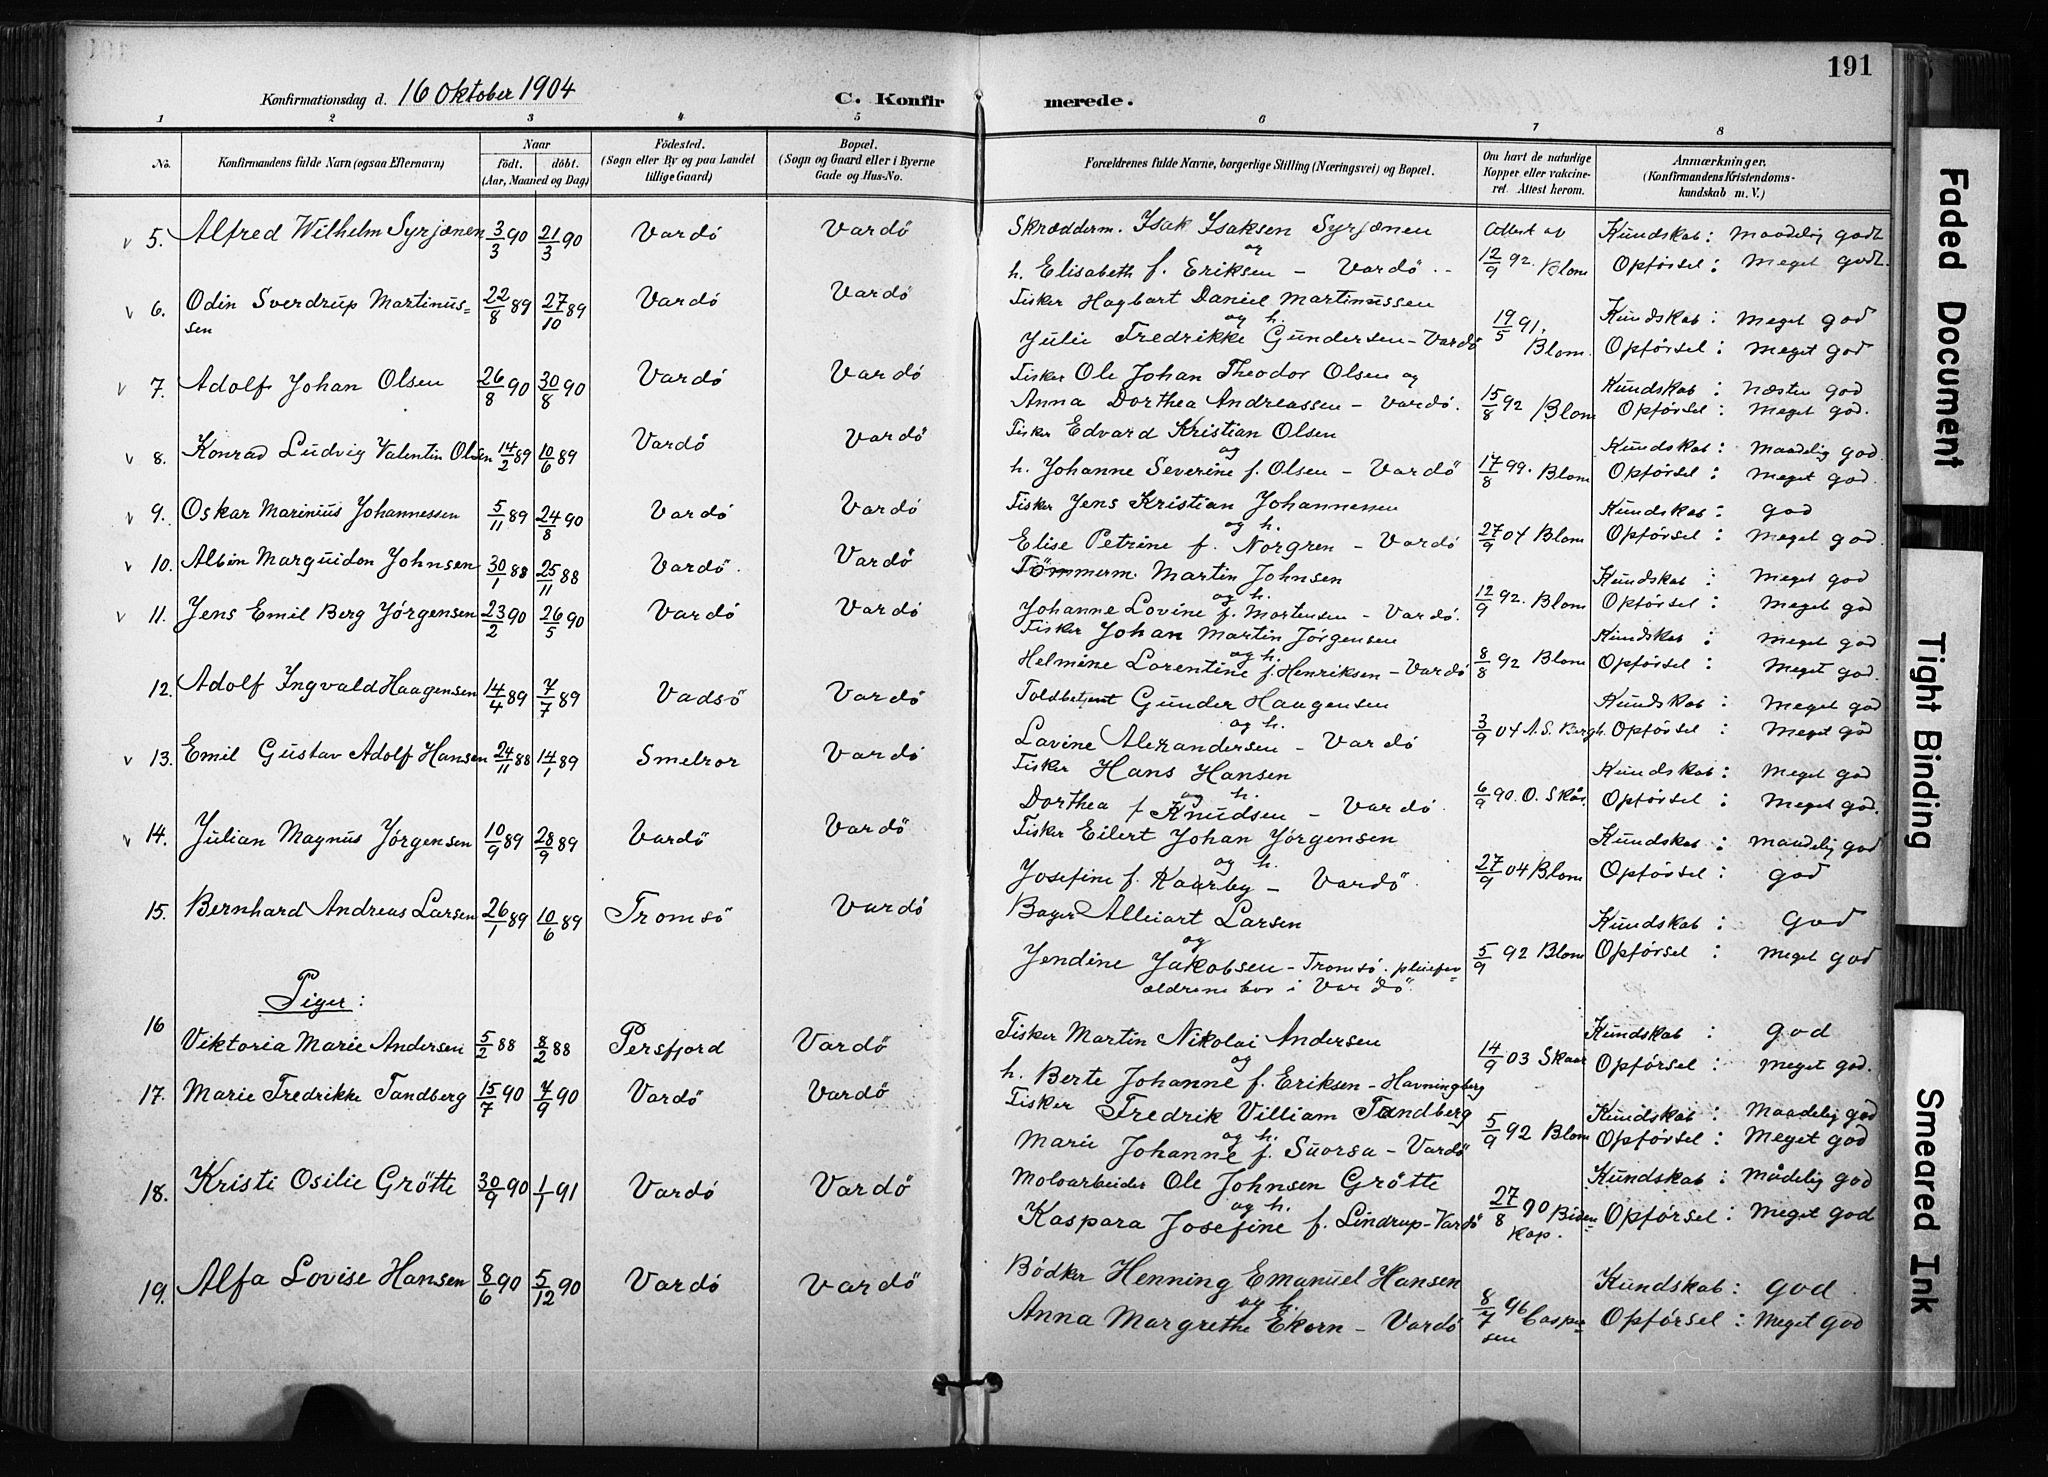 191
Konfirmationsdag d. 16 Oktober 1904
C. Konfirmerede.
1 2 3 4 5 6 7 8
No. Konfirmandens fulde Navn (ogsaa Efternavn) Naar født. døbt. (Aar, Maaned og Dag) Fødested. (Sogn eller By og paa Landet tillige Gaard) Bopæl. (Sogn og Gaard eller i Byerne Gade og Hus-No. Forældrenes fulde Navne, borgerlige Stilling (Næringsvei) og Bopæl. Om havt de naturlige Kopper eller vakcineret. Attest herom. Anmærkninger. (Konfirmandens Kristendomskundskab m. V.)
v 5. Alfred Wilhelm Syrjænen 3/3 90 21/3 90 Vardö Vardö Skrædderm. Isak Isaksen Syrjænen Attest av Kundskab: Maadelig godt
og
h. Elisabeth f. Eriksen - Vardö - 12/9 92. Blom Opförsel: Meget godt.
v 6. Odin Sverdrup Martinus= 22/8 89 27/10 89 Vardö Vardö Fisker Hagbart Daniel Martinussen Kundskab: Meget god
sen og h.
Julie Fredrikke Gundersen - Vardö 19/5 91. Blom. Opförsel: Meget god
v 7. Adolf Johan Olsen 26/8 90 30/8 90 Vardö Vardö Fisker Ole Johan Theodor Olsen og Kundskab: Næsten god
Anna Dorthea Andreassen - Vardö. 15/8 92 Blom Opförsel: Meget god.
v 8. Konrad Ludvig Valentin Olsen 14/2 89 10/6 89 Vardö Vardö Fisker Edvard Kristian Olsen Kundskab: Maadelig god.
og
h. Johanne Severine f. Olsen - Vardö 17/8 99. Blom Opförsel: Meget god.
v 9. Oskar Marinius Johannessen 5/11 89 24/8 90 Vardö Vardö Fisker Jens Kristian Johannessen Kundskab: god
og h.
Elise Petrine f. Norgren - Vardö 27/9 04 Blom Opförsel: Meget god.
v 10. Albin Marguidon Johnsen 30/1 88 25/11 88 Vardö. Vardö Tömmerm. Martin Johnsen Kundskab: Meget god
og h.
Johanne Lovine f. Mortensen - Vardö. 12/9 92. Blom Opförsel: Meget god
v 11. Jens Emil Berg Jörgensen 23/2 90 26/5 90 Vardö Vardö Fisker Johan Martin Jörgensen Kundskab: Meget god
og h.
Helmine Lorentine f. Henriksen - Vardö 8/8 92 Blom Opförsel: Meget god.
12. Adolf Ingvald Haagensen 14/4 89 7/7 89 Vadsö Vardö Toldbetjent Gunder Haagensen Kundskab: Meget god
og h.
Lovine Alexandersen - Vardö 3/9 04 A. S. Bergh. Opförsel: Meget god
v 13. Emil Gustav Adolf Hansen 24/11 88 14/1 89 Smelror Vardö Fisker Hans Hansen Kundskab: Meget god
og h.
Dorthea f. Knudsen - Vardö. 6/9 90. O. Skår. Opförsel: Meget god.
v 14. Julian Magnus Jörgensen 10/9 89 28/9 89 Vardö Vardö Fisker Eilert Johan Jörgensen Kundskab: Maadelig god
og h.
Josefine f. Kaarby - Vardö. 27/9 04 Blom Opförsel: god
15. Bernhard Andreas Larsen 26/1 89 10/6 89 Tromsö Vardö Bager Larsen Kundskab: God
og
Jendine Jakobsen - Tromsö. pleiefor= 5/9 92 Blom Opförsel: Meget god
ældrene bor i Vardö.
Piger:
16 Viktoria Marie Andersen 5/2 88 8/2 88 Persfjord Vardö Fisker Martin Nikolai Andersen Kundskab: god
og
h. Berte Johanne f. Eriksen - Havningberg 14/9 03 Skaar Opförsel: Meget god.
17. Marie Fredrikke Tandberg 15/7 90 7/9 90 Vardö Vardö Fisker Fredrik Villiam Tandberg Kundskab: Maadelig god
og h.
Marie Johanne f. Suorsa - Vardö 5/9 92 Blom Opförsel: Meget god
18. Kristi Osilie Grötte 30/9 90 1/1 91 Vardö Vardö Moloarbeider Ole Johnsen Grötte Kundskab: Mådelig god
og h.
Kaspara Josefine f. Lindrup - Vardö 27/8 90 Biden= kap. Opförsel: Meget god
19. Alfa Lovise Hansen 8/6 90 5/12 90 Vardö Vardö Bödker Henning Emanuel Hansen Kundskab: god.
og h.
Anna Margrethe Ekorn - Vardö 8/7 96 Casper= sen Opförsel: Meget god
Faded Document
Tight Binding
Smeared Ink